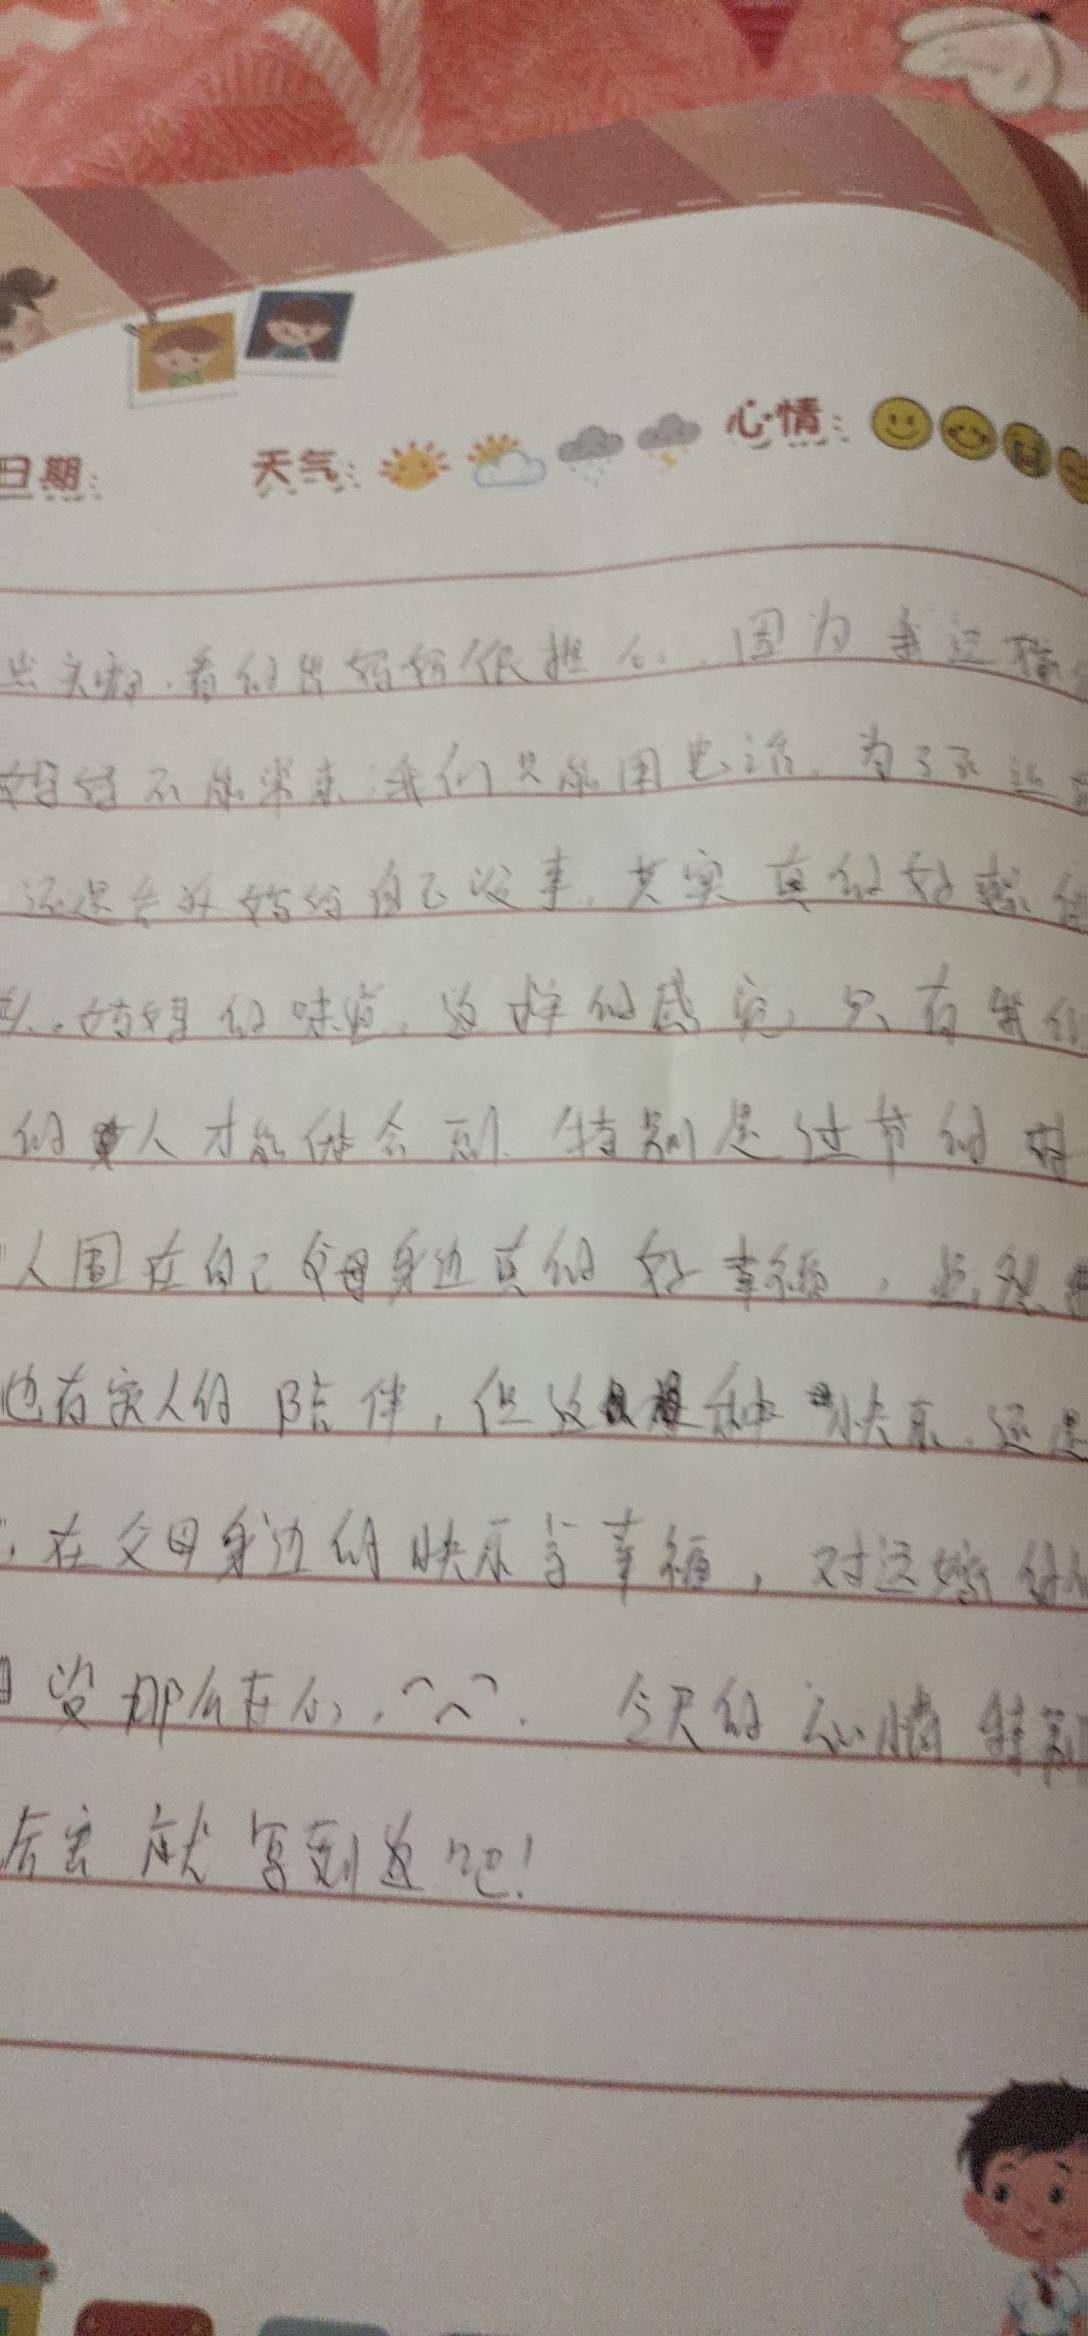 日期: 天气: 心情:
看的出妈妈很担心. 因为我远
妈妈不能来我们只能用电话. 为了不
还是告诉妈妈自己没事. 其实真的好想
妈妈的味道. 这样的感觉, 只有我们
的人才能体会到. 特别是过节的时
人围在自己父母身边真的好幸福,
也有家人的陪伴, 但这种快乐. 还是
在父母身边的快乐与幸福, 对远嫁的
没那么在心. 今天的心情特别
就写到这吧!